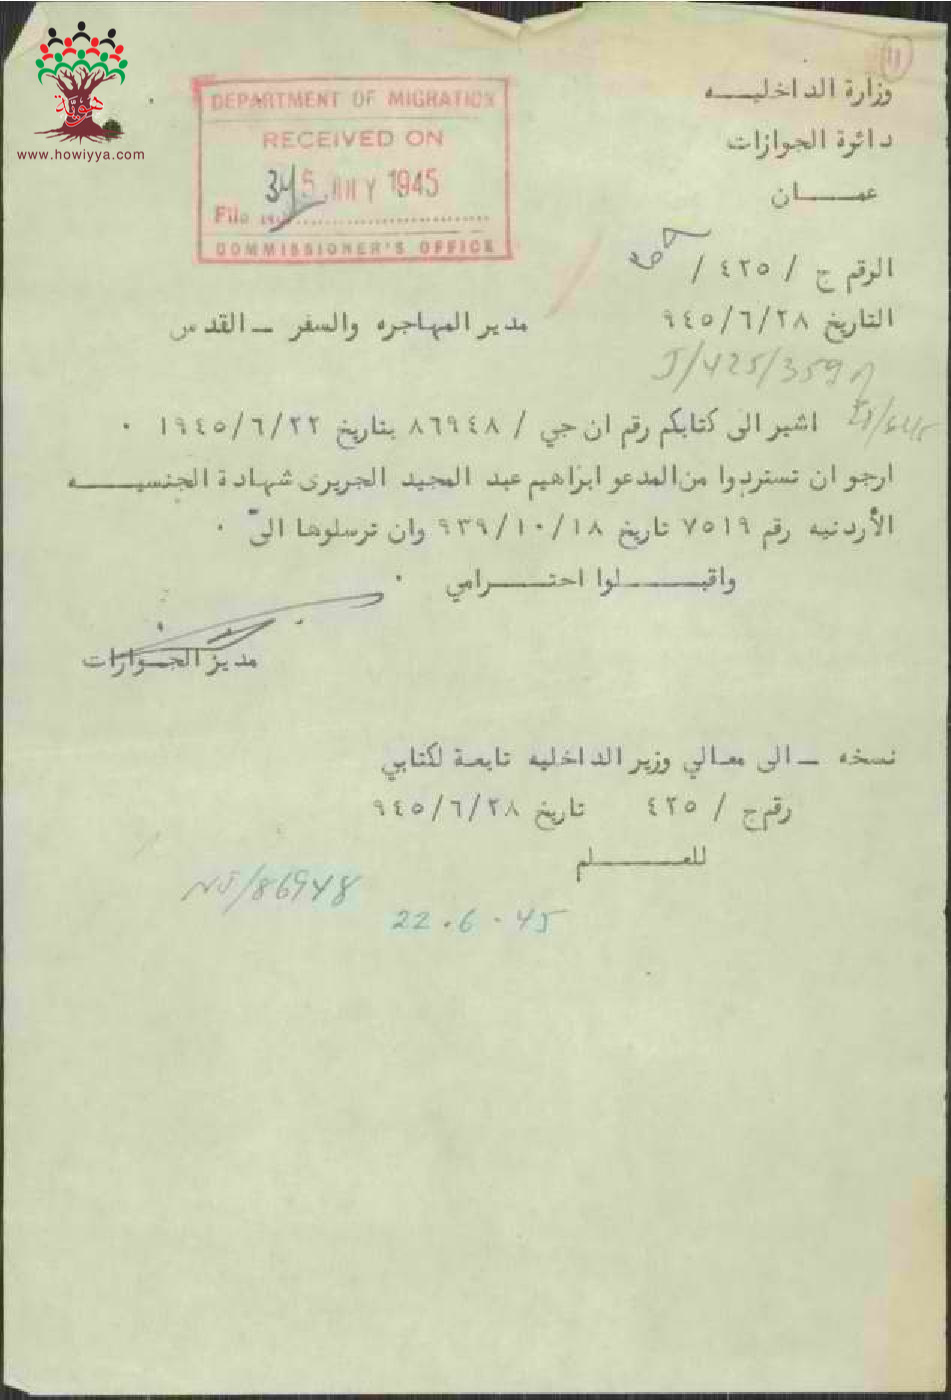 هوية
www.howiyya.com
11
DEPARTMENT OF MIGRATION
RECEIVED ON
5 JULY 1945
File No.
COMMISSIONER'S OFFICE
وزارة الداخليـــه
دائرة الجوازات
عمـــــان
الرقم ج / ٤٢٥ /
التاريخ ٩٤٥/٦/٢٨
مدير المهاجره والسفر ــ القدس
J/425/359
اشير الى كتابكم رقم ان جي / ٨٦٩٤٨ بتاريخ ١٩٤٥/٦/٢٢ ٠
ارجو ان تستردوا من المدعو ابراهيم عبد المجيد الجريرى شهادة الجنسيـــــه
الأردنيه رقم ٧٥١٩ تاريخ ٩٣٩/١٠/١٨ وان ترسلوها الىّ ٠
واقبــــــــلوا احتــــــرامي ٠
مدير الجـوازات
نسخه ــ الى معالي وزير الداخليه تابعة لكتابي
رقم ج / ٤٢٥ تاريخ ٩٤٥/٦/٢٨
للعـــــــــلم
NJ/86948
22.6.45